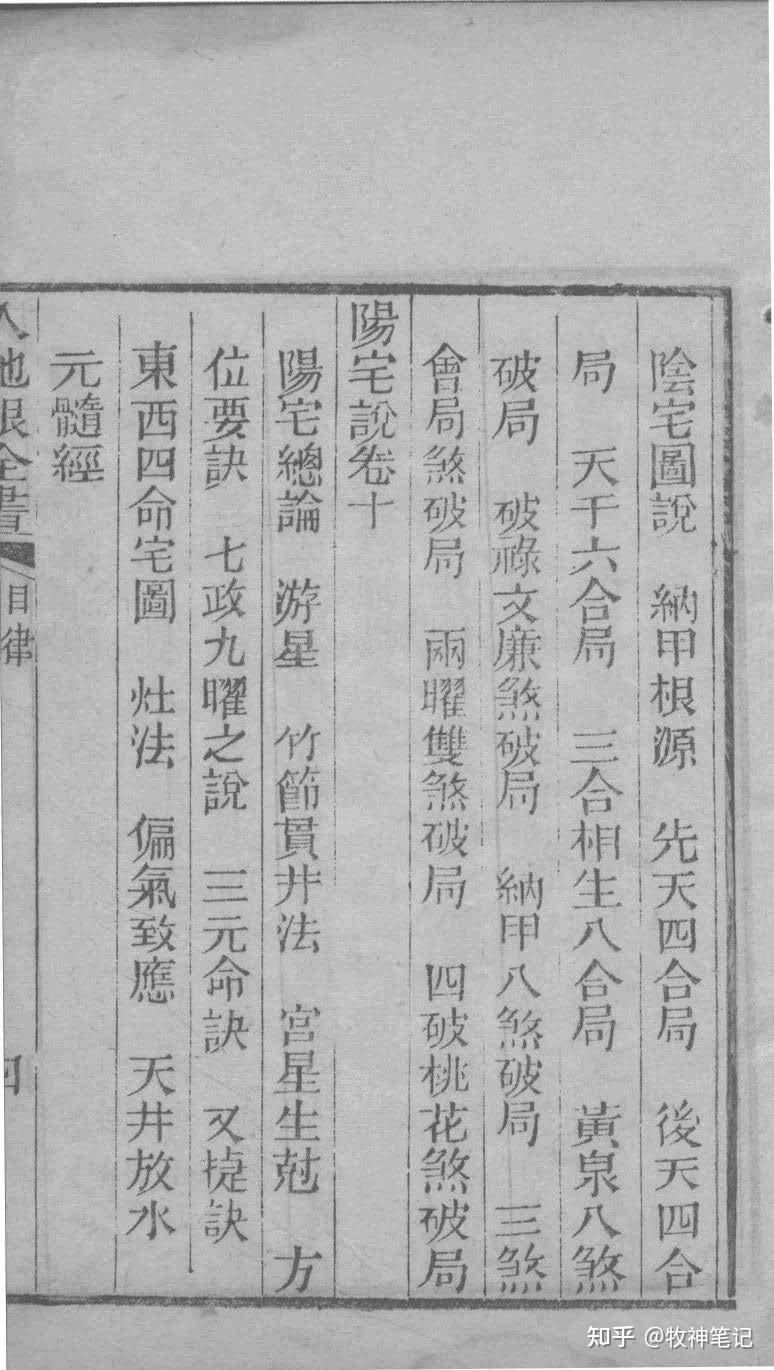 陰宅圖說　納甲根源　先天四合局　後天四合
局　天干六合局　三合相生八合局　黃泉八煞
破局　破祿文廉煞破局　納甲八煞破局　三煞
會局煞破局　兩曜雙煞破局　四破桃花煞破局
陽宅說卷十
陽宅總論　游星　竹節貫井法　宮星生尅　方
位要訣　七政九曜之說　三元命訣　又捷訣
東西四命宅圖　灶法　偏氣致應　天井放水
元髓經
人地眼全書　目錄　四
知乎 @牧神笔记